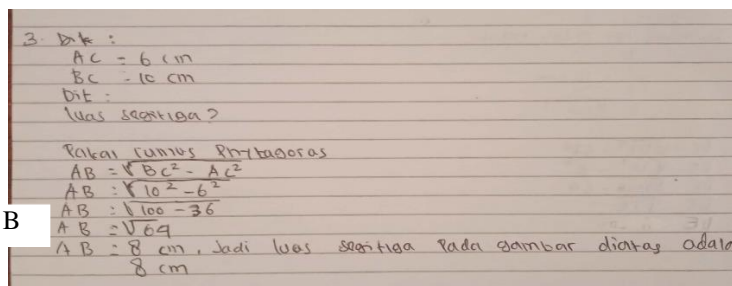 3. Dik :
AC = 6 cm
BC = 10 cm
Dit :
luas segitiga?
Pakai rumus Phytagoras
AB = √BC² - AC²
AB : √10² - 6²
AB : √100 - 36
B
AB = √64
AB = 8 cm. Jadi luas segitiga Pada gambar diatas adala
8 cm